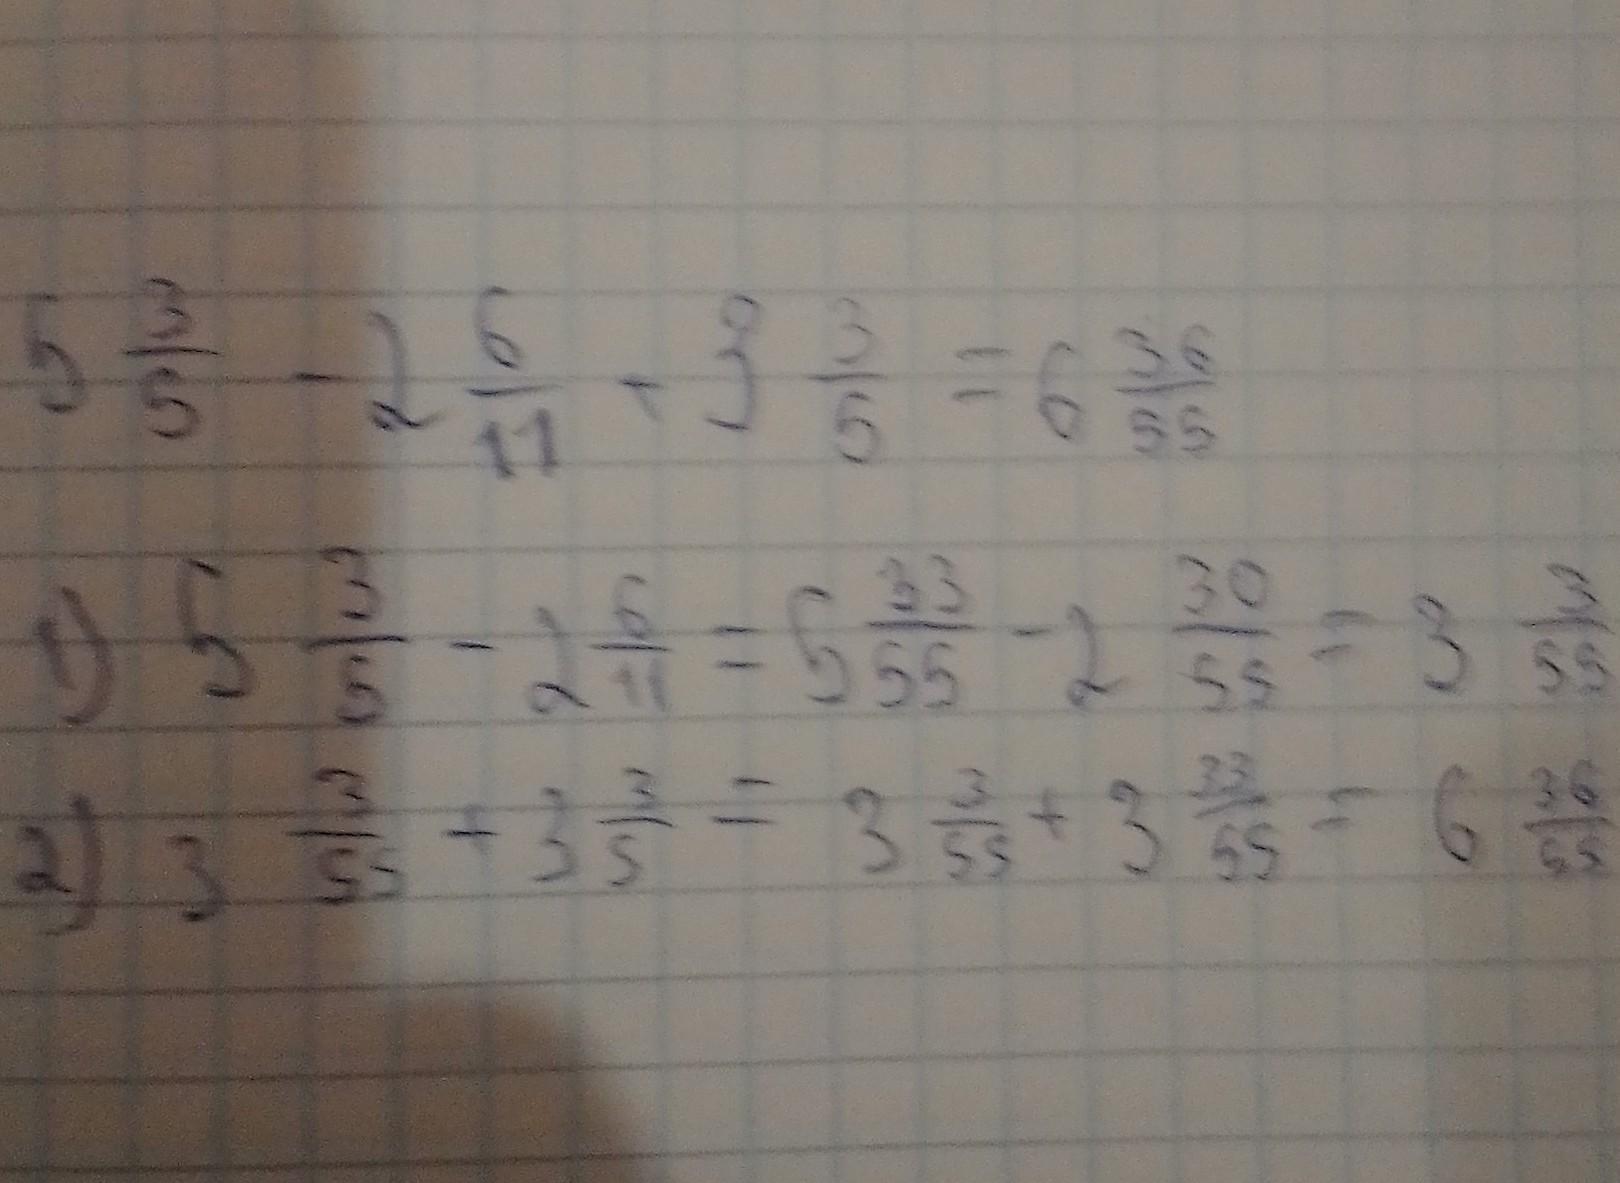 5 3/5 - 2 6/11 + 3 3/5 = 6 36/55
1) 5 3/5 - 2 6/11 = 5 33/55 - 2 30/55 = 3 3/55
2) 3 3/55 + 3 3/5 = 3 3/55 + 3 33/55 = 6 36/55